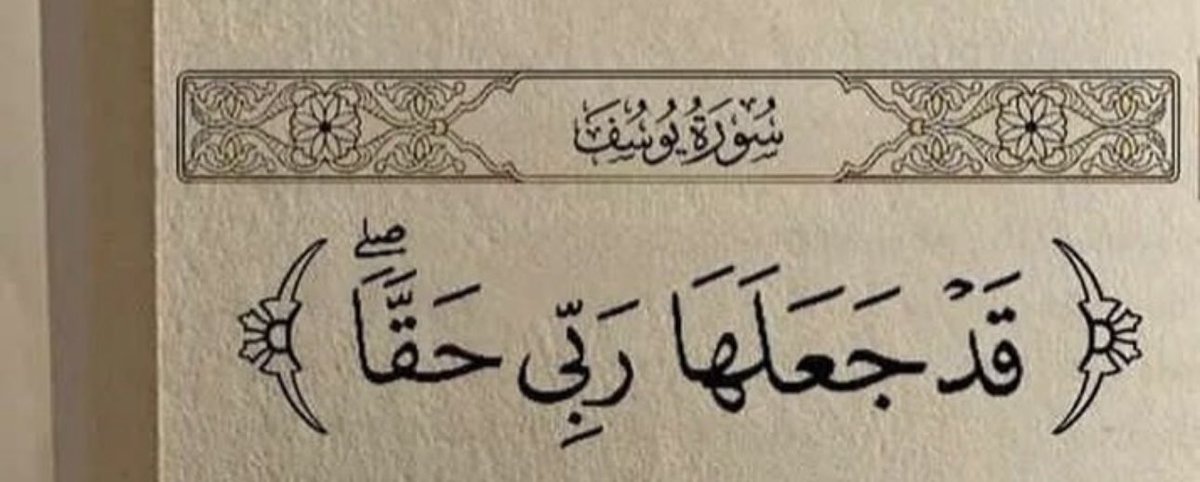 سُورَةُ يُوسُفَ
﴿قَدْ جَعَلَهَا رَبِّي حَقًّاۖ﴾